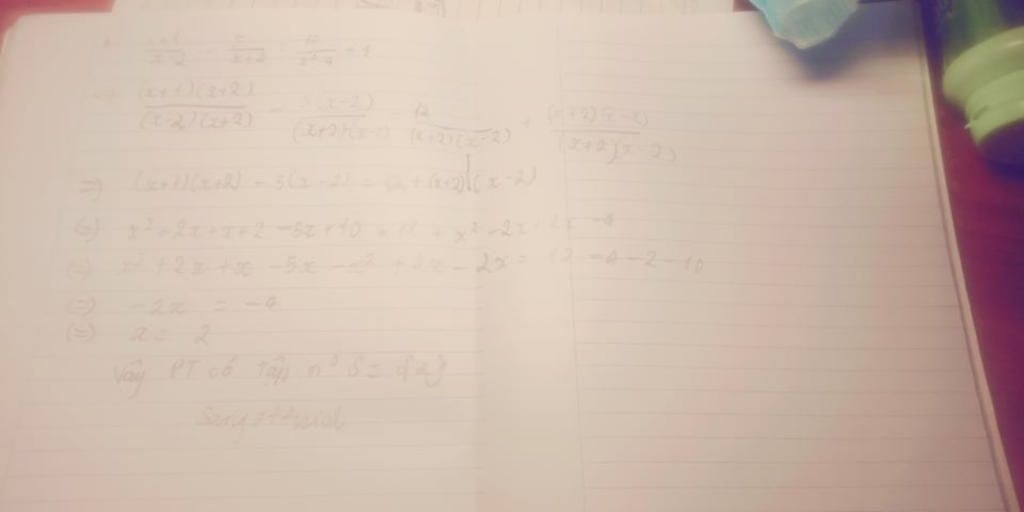 (x+1)(x+2)/(x-2)(x+2) - 5(x-2)/(x+2)(x-2) = 12/(x+2)(x-2) + (x+2)(x-2)/(x+2)(x-2)
=> (x+1)(x+2) - 5(x-2) = 12 + (x+2)(x-2)
(=) x² + 2x + x + 2 - 5x + 10 = 12 + x² - 2x + 2x - 4
(=) x² + 2x + x - 5x - x² + 2x - 2x = 12 - 4 - 2 - 10
(=) -2x = -4
(=) x = 2
Vậy PT có Tập n⁰ S = {2}